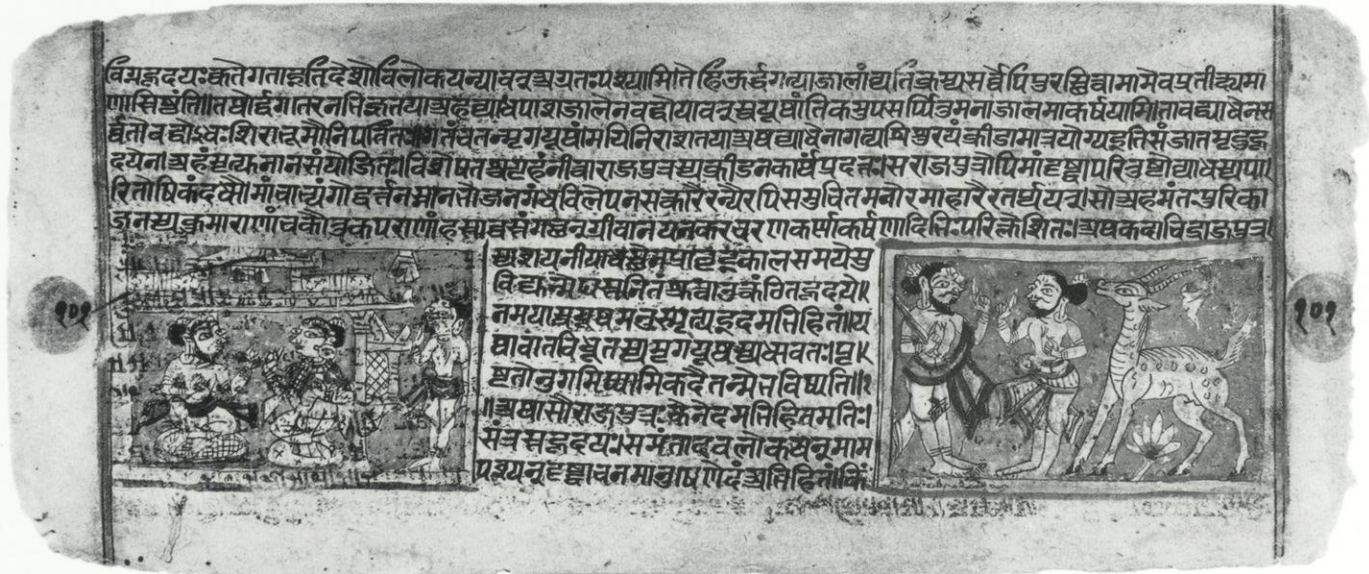 क्वतेगताइतिदेशोविलोकयन्यावत्अग्रतःपश्यामितेहिऊर्द्धगत्याजालंव्यतिक्रम्यसर्वेपिपुरस्थित्वामामेवप्रतीक्ष्यमा
णास्तिष्टंति॥तत्रोर्द्धगतारनभिज्ञतयाअहंव्याधपाशजालेनबद्धोयावत्स्वयूथांतिकमुपसर्प्पितुमनाजालमाकर्षयामि।तावद्व्याधेनस
र्वतोबद्धोऽधःशिरात्भूमौनिपतितः।गतंचतन्मृगयूथंमयिनिराशतयाअथव्याधेनागत्यशिशुरयंक्रीडामात्रयोग्यइतिसंजातमृदुहृ
दयेन।अहंमृत्युनानसंयोजितः।विशेषतश्चगृहंनीत्वाराजपुत्रस्यक्रीडनकार्थंप्रदत्तः।सराजपुत्रोपिमांदृष्ट्वापरितुष्टोव्याधस्यपा।
रितोषिकंददौ।मांचात्यंगोद्वर्त्तनस्नानभोजनगंधविलेपनसत्कारैरन्यैरपिसमुचितमनोरमाहारैरतर्प्पयत्।सोअहमंतःपुरिका
जनस्यकुमाराणांचकौतुकपराणांहस्ताद्धस्तंगछन्ग्रीवानयनकरचरणकर्णाकर्षणादिभिःपरिक्लेशितः।अथकदाचिद्राजपुत्र
स्यशयनीयाधस्तेन प्रावृट्कालसमयेमु
विद्युन्मेघस्वनित उत्कंठितहृदये॥
नमयास्वयूथमनुस्मृत्यइदमभिहितं॥य
थावातविधूतस्यमृगयूथस्यधावतः।पृ॥
ष्टतोनुगमिष्यामिकदैतन्मेभविष्यति॥१
॥अथासौराजपुत्रःकेनेदमभिहितमितिः।
संत्रस्तहृदयःसमंतादवलोकयन्माम
पश्यन्दृष्ट्वाचनमानुषेणेदंअभिहितं।किं
१०१
१०१